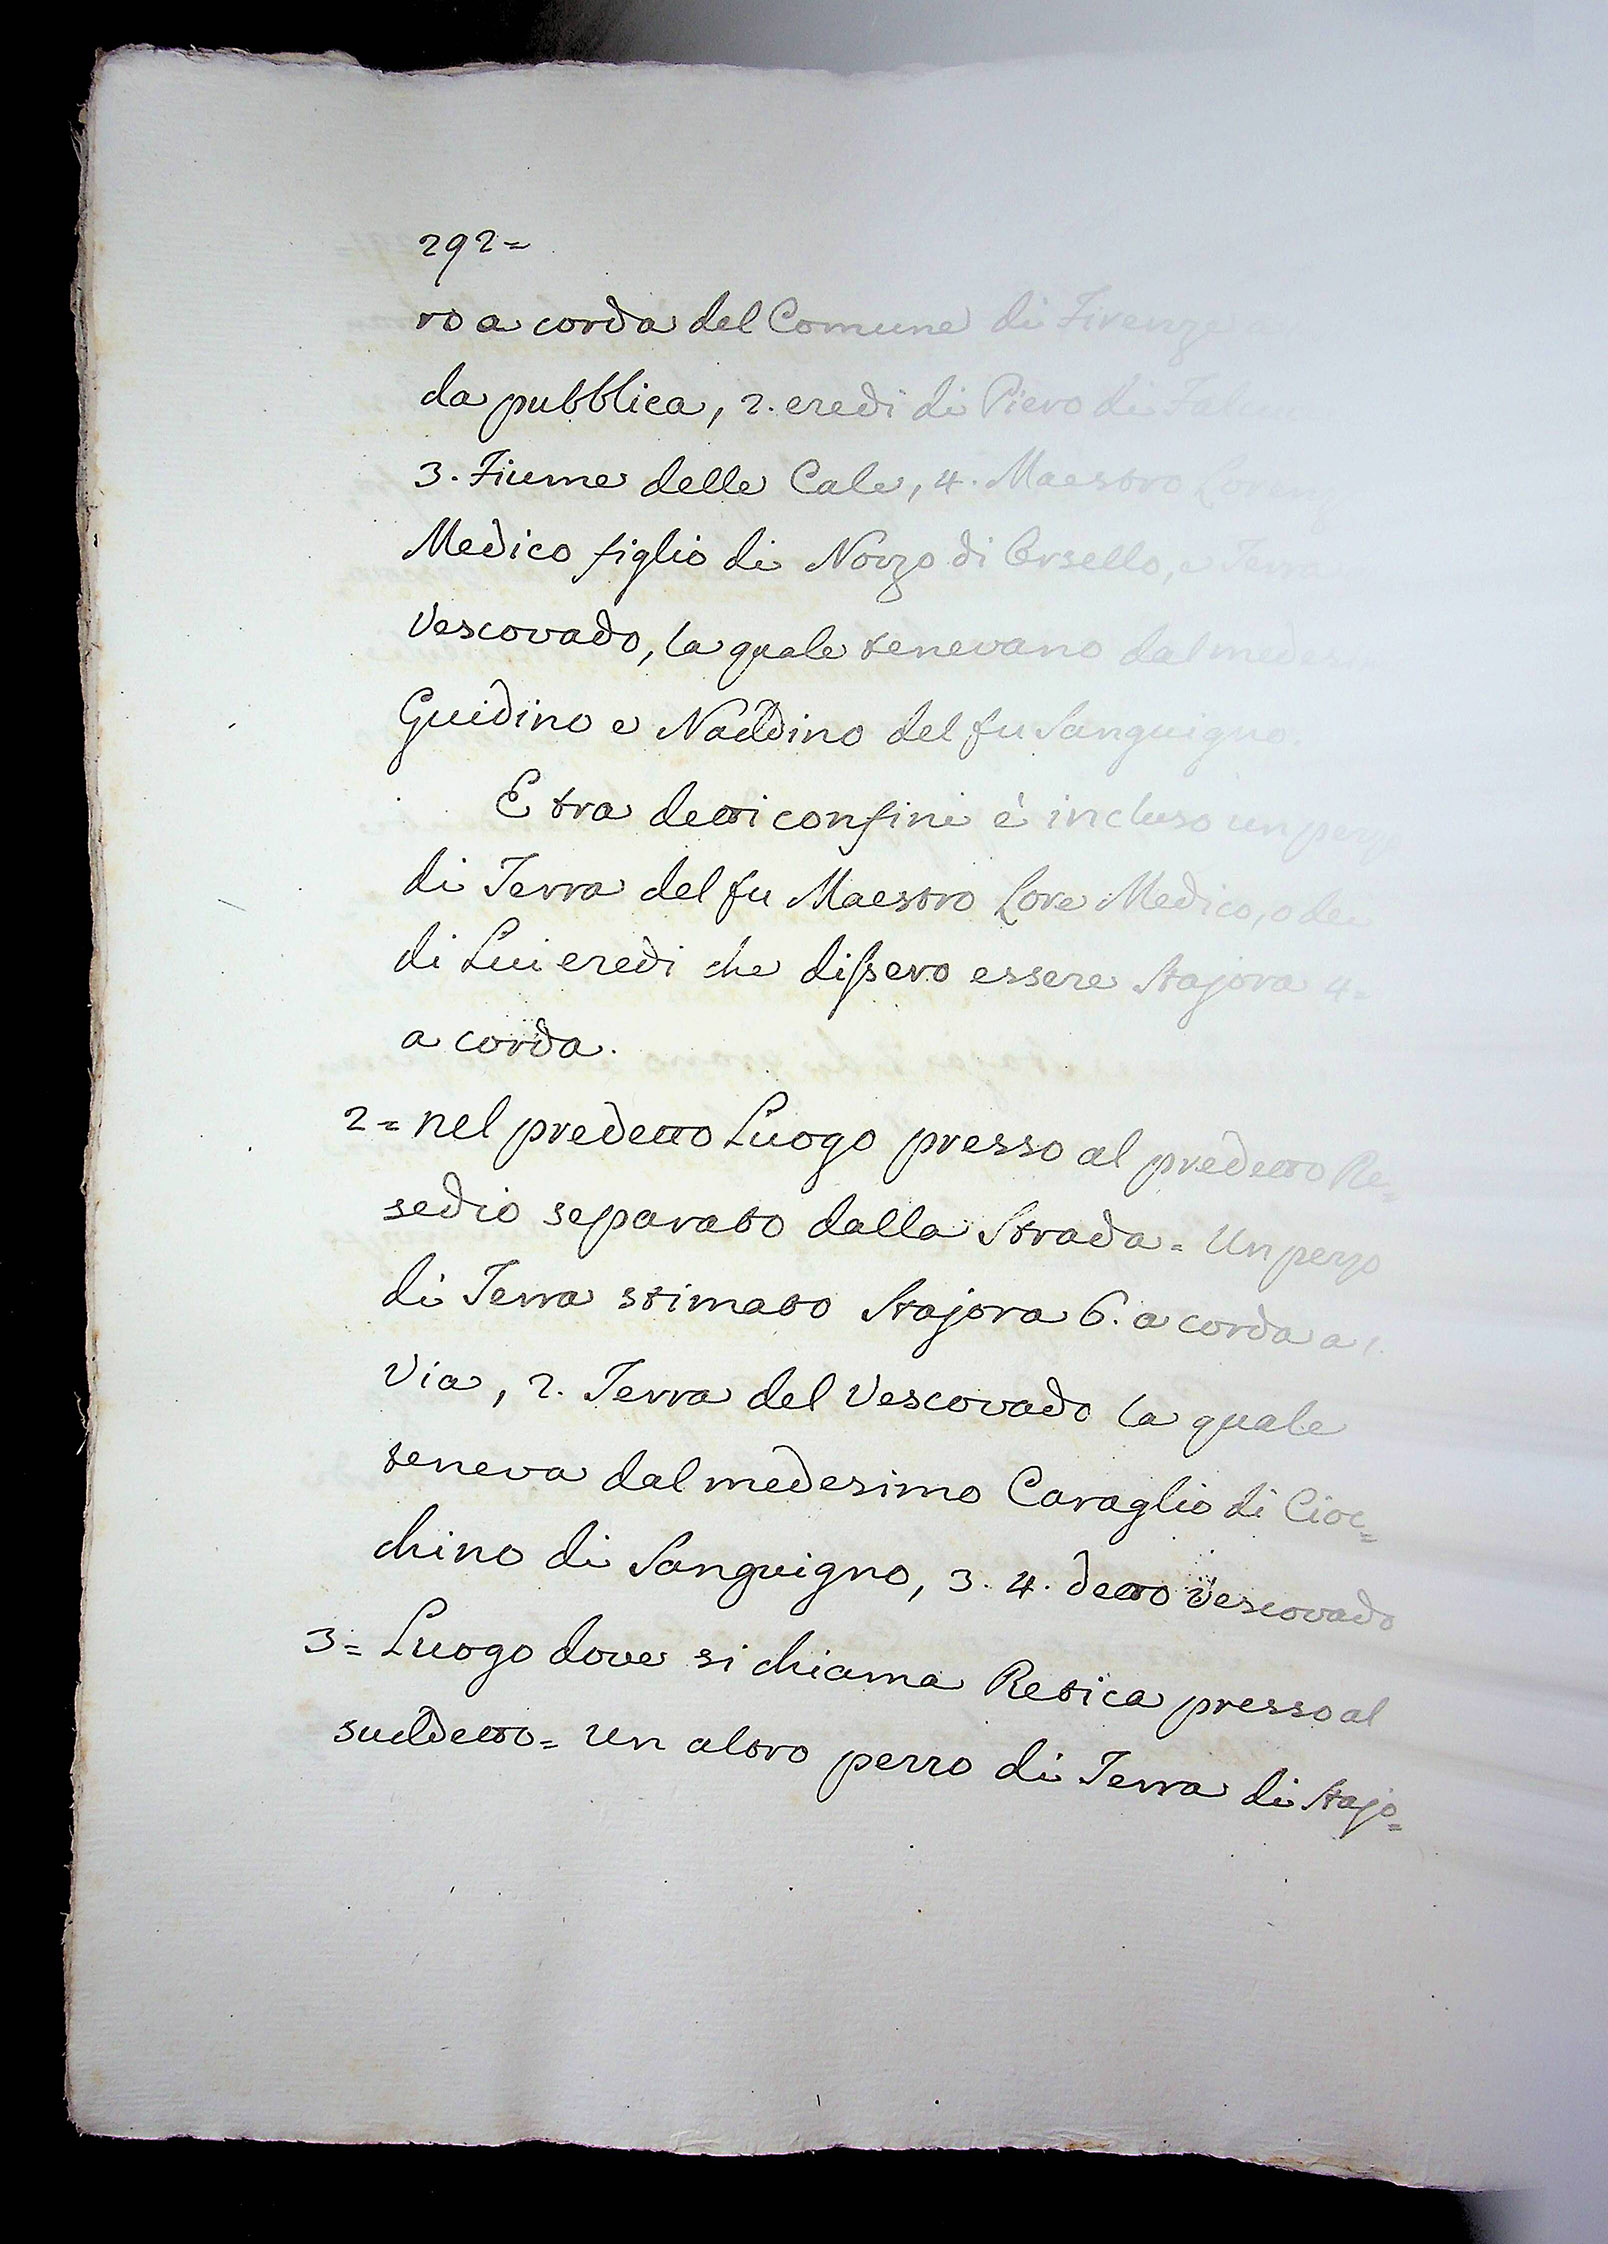 292=
ro a corda del Comune di Firenz
da pubblica, 2. eredi di Piero di
3. Fiume delle Cale, 4. Maestro Loren
Medico figlio di Nozzo di Orsello, e Terra
Vescovado, la quale tenevano dal medesi
Guidino e Naddino del fu Sanguigno.
E tra detti confini è incluso un pezzo
di Terra del fu Maestro Lore Medico, o dei
di Lui eredi che dissero essere Stajora 4=
a corda.
2= nel predetto Luogo presso al predetto Re=
sedio separato dalla Strada= Un pezzo
di Terra stimato Stajora 6. a corda a 1.
Via, 2. Terra del Vescovado la quale
teneva dal medesimo Caraglio di Cioc=
chino di Sanguigno, 3. 4. detto Vescovado
3= Luogo dove si chiama Retica presso al
suddetto= Un altro pezzo di Terra di Stajo=